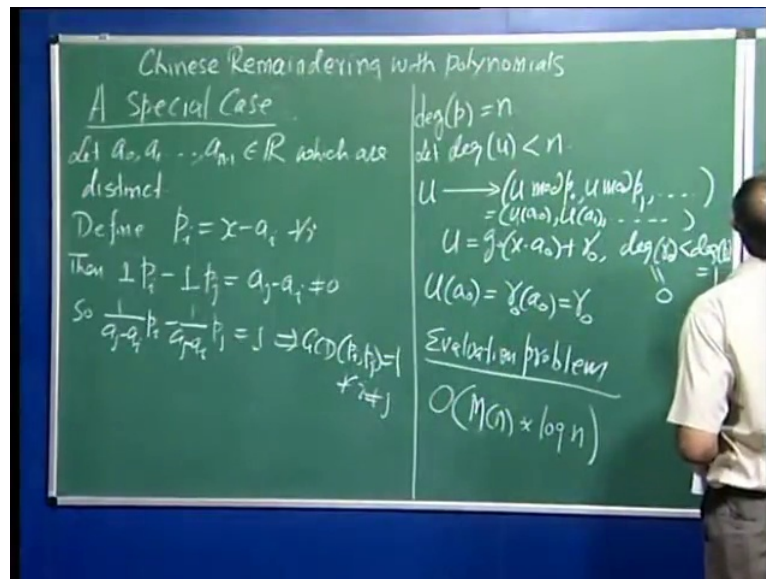 Chinese Remaindering with Polynomials
A Special Case
Let a₀, a₁ ..., aₙ₋₁ ∈ ℝ which are
distinct
Define pᵢ = x - aᵢ ∀i
Then 1 pᵢ - 1 pⱼ = aⱼ - aᵢ ≠ 0
So 1/(aⱼ-aᵢ) pᵢ - 1/(aⱼ-aᵢ) pⱼ = 1 ⇒ GCD(pᵢ, pⱼ) = 1
∀ i ≠ j
deg(p) = n
Let deg(u) < n
U → (u mod p₀, u mod p₁, ....)
= (u(a₀), u(a₁), ......)
U = q·(x-a₀) + r₀, deg(r₀) < deg(p₀)
= 1
||
0
U(a₀) = r₀(a₀) = r₀
Evaluation problem
O(M(n) * log n)